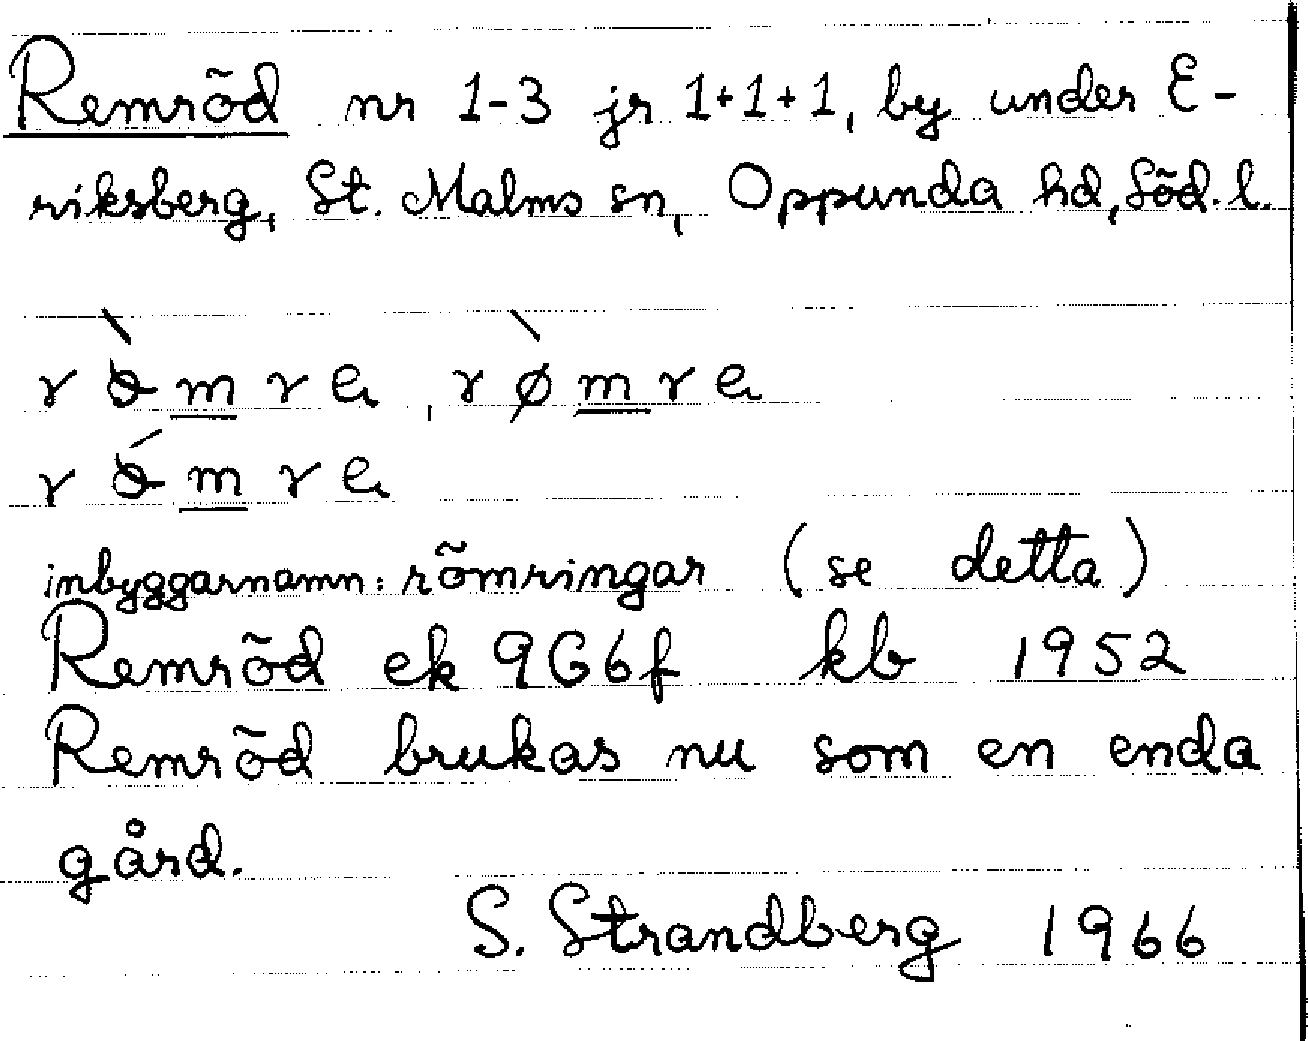 Remröd nr 1-3 jr 1+1+1, by under E-
riksberg, St. Malms sn, Oppunda hd, Söd. l.
inbyggarnamn: römringar (se detta)
Remröd ek 9G6f kb 1952
Remröd brukas nu som en enda
gård.
S. Strandberg 1966